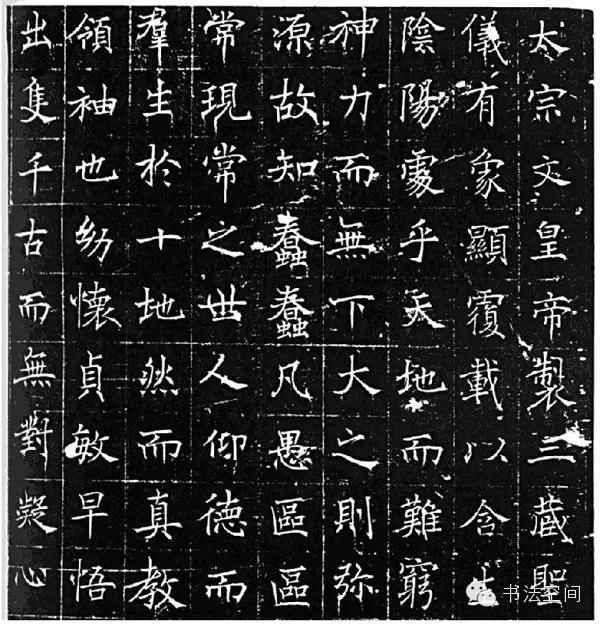 太宗文皇帝製三藏聖
儀有象顯覆載以含
陰陽處乎天地而難窮
神力而無下大之則弥
源故知蠢蠢凡愚區區
常現常之世人仰德而
羣生於十地然而真教
領袖也幼懷貞敏早悟
出隻千古而無對凝心
书法空间